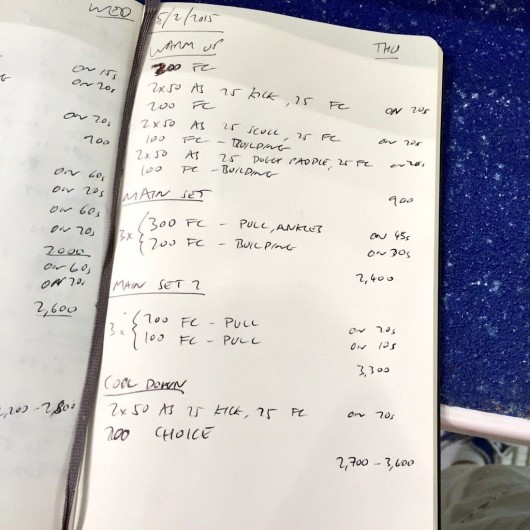 WED
ON 15s
ON 20s
ON 20s
ON 60s
ON 20s
ON 60s
ON 20s
2000
ON 60s
ON 20s
2,600
2,800
5/2/2015
WARM UP THU
200 FC
2x50 AS 25 KICK, 25 FC ON 20s
200 FC
2x50 AS 25 SCULL, 25 FC ON 20s
100 FC - BUILDING
2x50 AS 25 DOGGY PADDLE, 25 FC ON 20s
100 FC - BUILDING
900
MAIN SET
3x { 300 FC - PULL, ANKLES ON 45s
200 FC - BUILDING ON 30s
2,400
MAIN SET 2
3x { 200 FC - PULL ON 20s
100 FC - PULL ON 10s
3,300
COOL DOWN
2x50 AS 25 KICK, 25 FC ON 20s
200 CHOICE
2,700 - 3,600